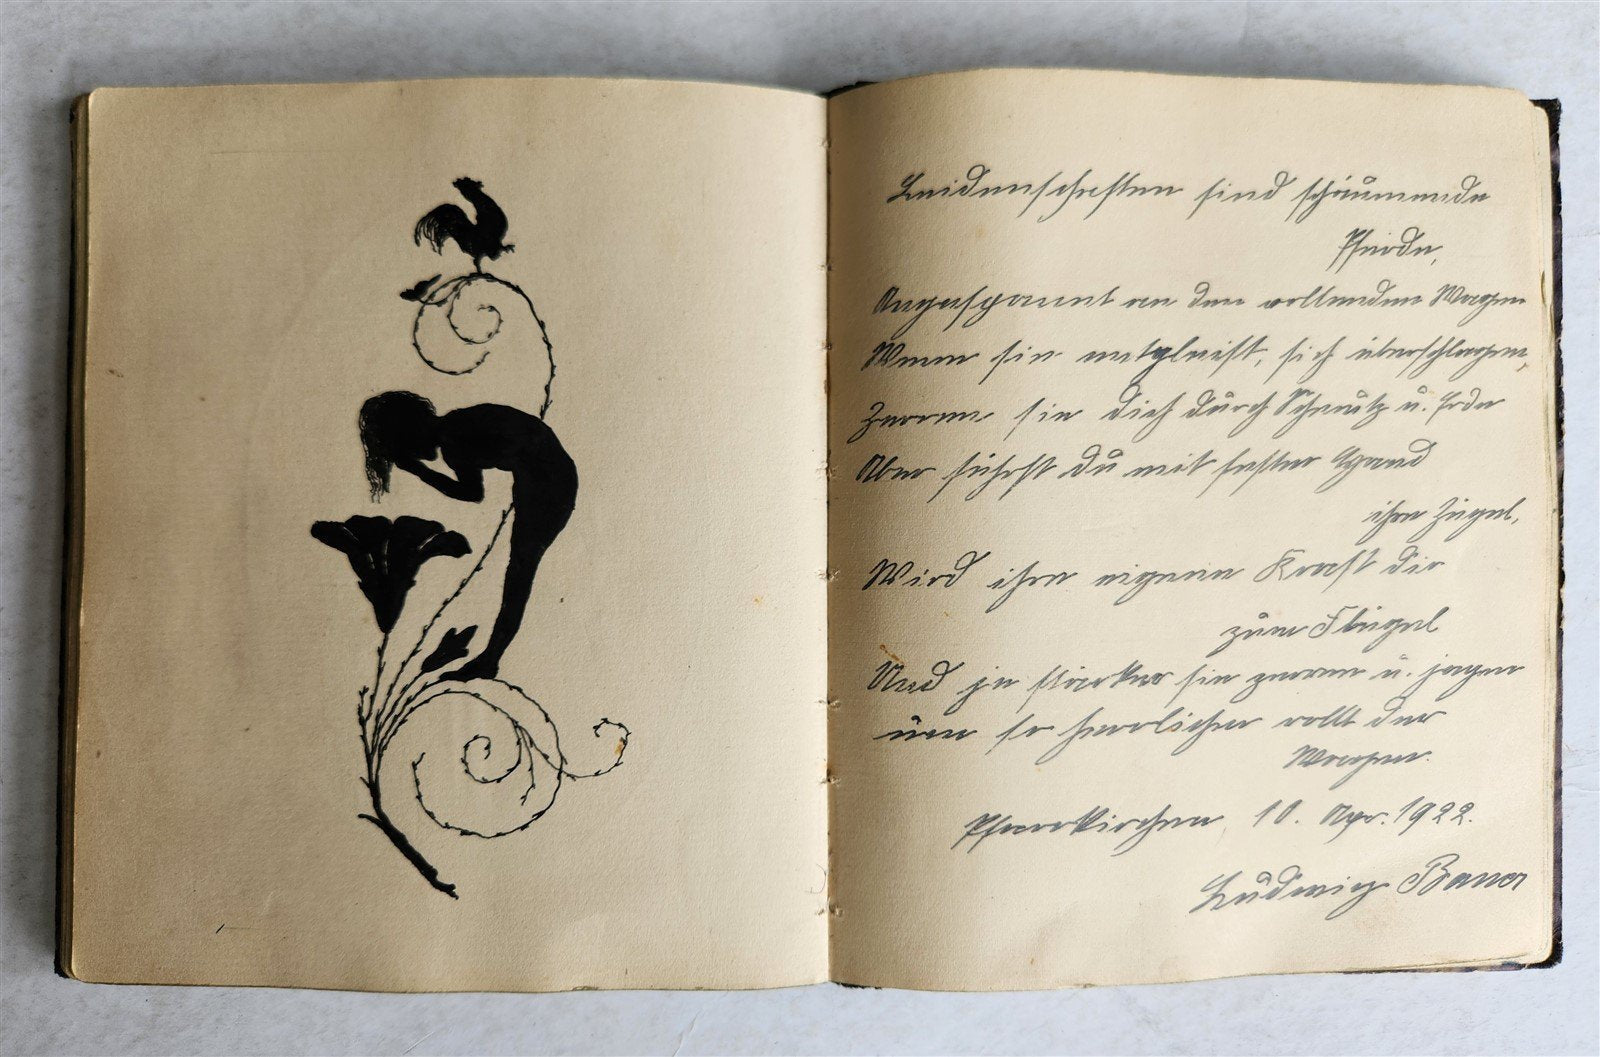 Leidenschaften sind schäumende
Pferde,
Angespannt an den rollenden Wagen
Wenn sie entgleist, sich überschlagen,
Zerren sie dich durch Schmutz u. Erde
Aber führst du mit fester Hand
ihre Zügel,
Wird ihre eigene Kraft dir
zum Flügel
Und je stärker sie zerren u. jagen
um so herrlicher rollt der
Wagen.
Pfarrkirchen, 10. Apr. 1922.
Ludwig Bauer